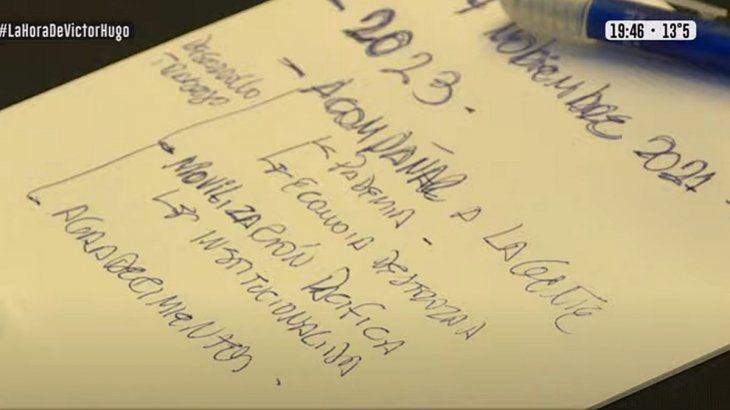 #LaHoraDeVictorHugo
19:46 • 13°5
NOVIEMBRE 2021 -
- 2023.
DESARROLLO
TRABAJO
- ACOMPAÑAR A LA GENTE
↳ PADEMIA -
↳ ECONOIA DESTRUZADA
- MOVILIZACIÓN PACIFICA
↳ INSTITUCIONALIDA
- AGRADECIMIENTOS.